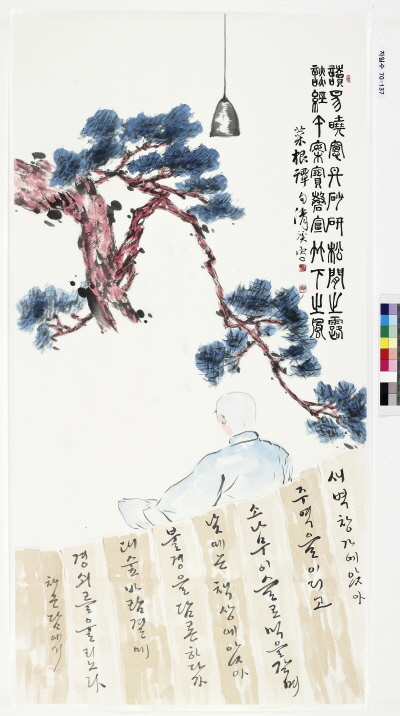 讀易曉窓丹砂研松間之露
談經午案寶磬宣竹下之風
菜根譚句
새벽 창가에 앉아
주역을 읽고
소나무 이슬로 먹을 갈며
낮에는 책상에 앉아
불경을 담론하다가
대숲 바람결에
경쇠를 울린다
채근담에서
70-137